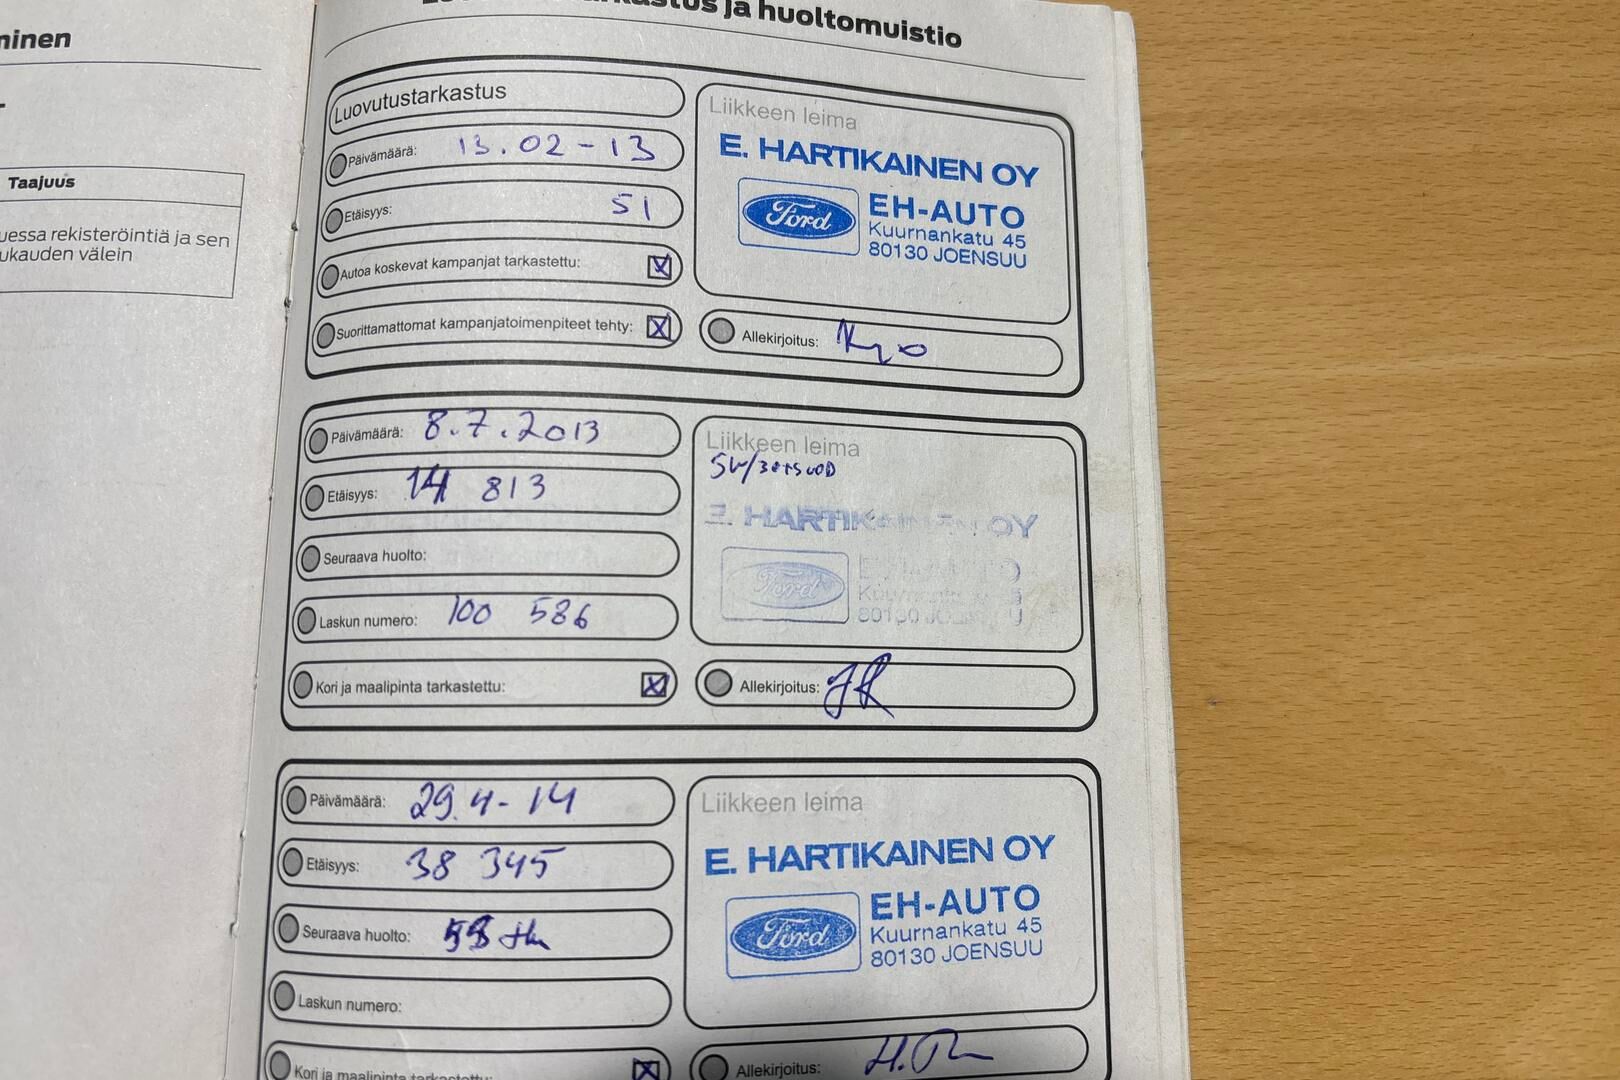 minen
Taajuus
uessa rekisteröintiä ja sen
ukauden välein
tarkastus ja huoltomuistio
Luovutustarkastus
Päivämäärä: 13.02-13
Etäisyys: 51
Autoa koskevat kampanjat tarkastettu: X
Suorittamattomat kampanjatoimenpiteet tehty: X
Liikkeen leima
E. HARTIKAINEN OY
Ford
EH-AUTO
Kuurnankatu 45
80130 JOENSUU
Allekirjoitus:
Päivämäärä: 8.7.2013
Etäisyys: 14 813
Seuraava huolto:
Laskun numero: 100 586
Kori ja maalipinta tarkastettu: X
Liikkeen leima
E. HARTIKAINEN OY
Ford
80130 JOENSUU
Allekirjoitus:
Päivämäärä: 29.4-14
Etäisyys: 38 345
Seuraava huolto:
Laskun numero:
Kori ja maalipinta tarkastettu: X
Liikkeen leima
E. HARTIKAINEN OY
Ford
EH-AUTO
Kuurnankatu 45
80130 JOENSUU
Allekirjoitus: